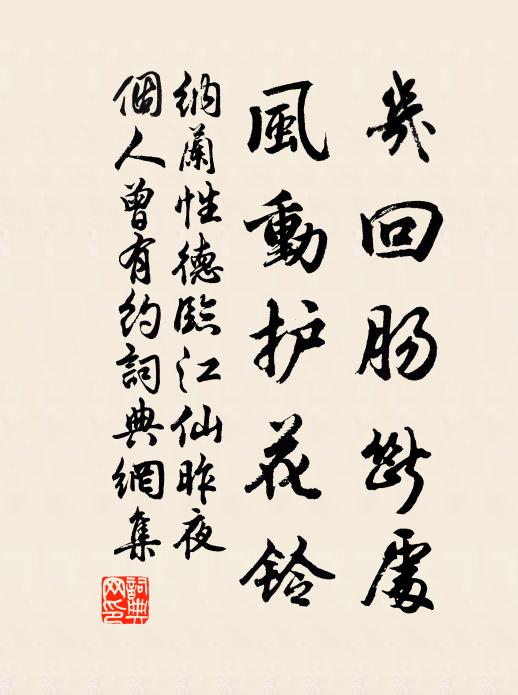 幾回肠斷處
風動护花鈴
納蘭性德臨江仙昨夜
個人曾有約詞典網集
詞典網印